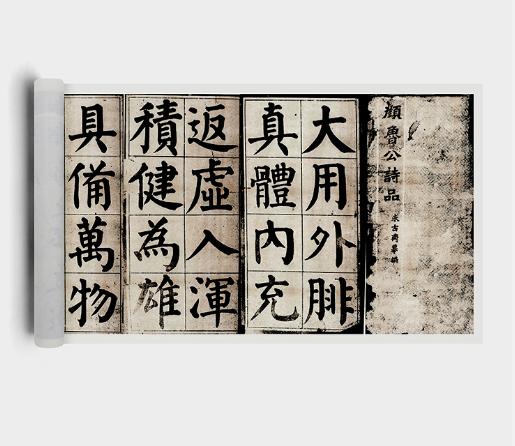 顏魯公詩品
求古齋
大用外腓
真體內充
返虛入渾
積健為雄
具備萬物